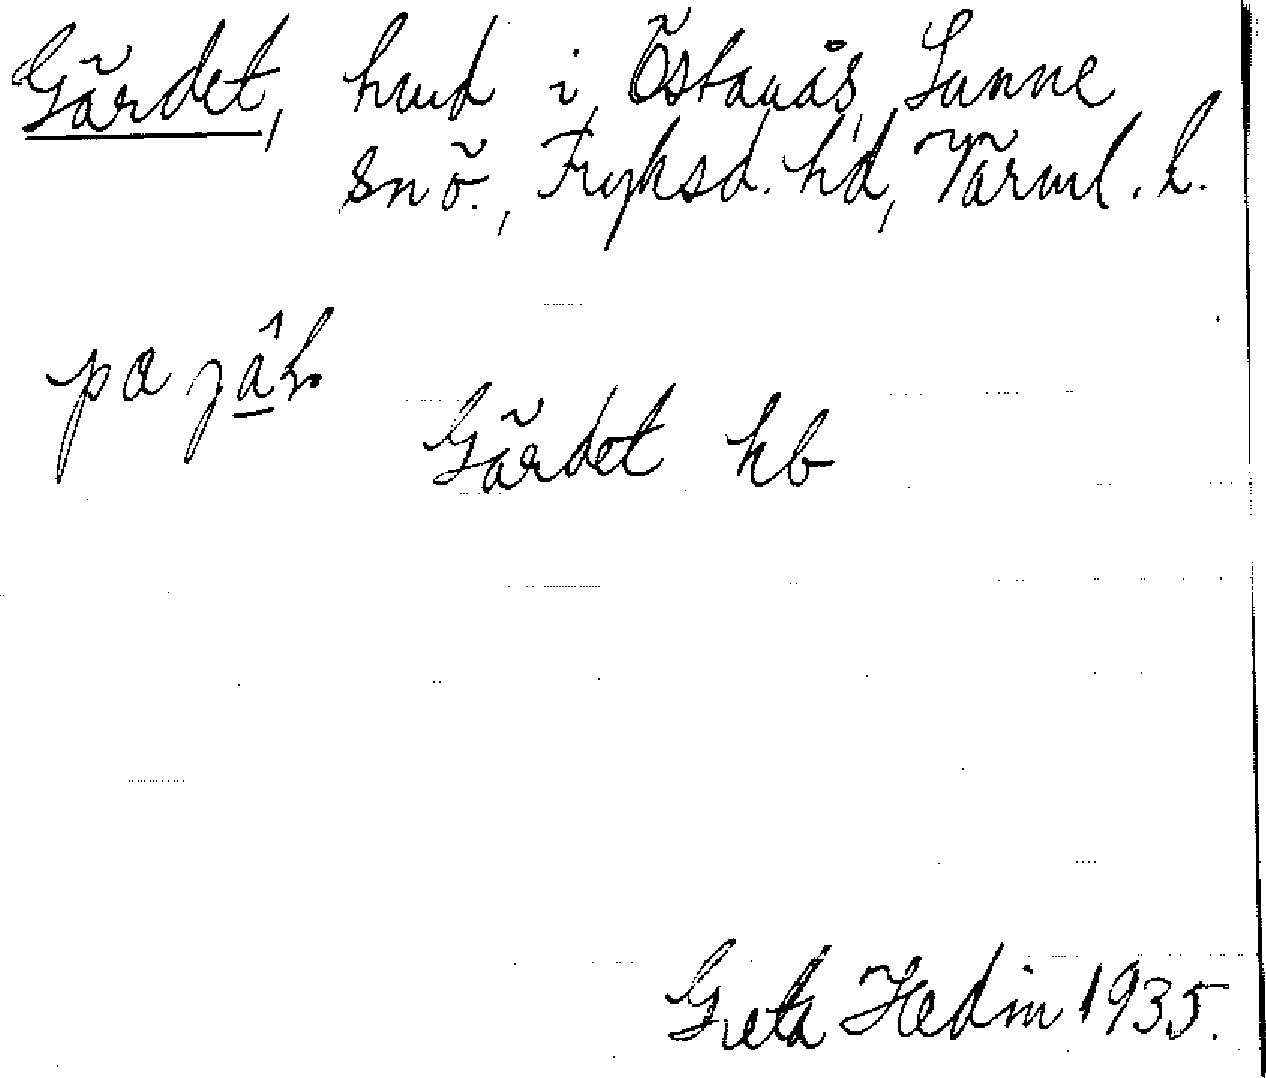 Gärdet, hmd i Östanås, Sunne
snö., Fryksd. hd, Värml. l.
pa
Gärdet hb
Greta Hedin 1935.